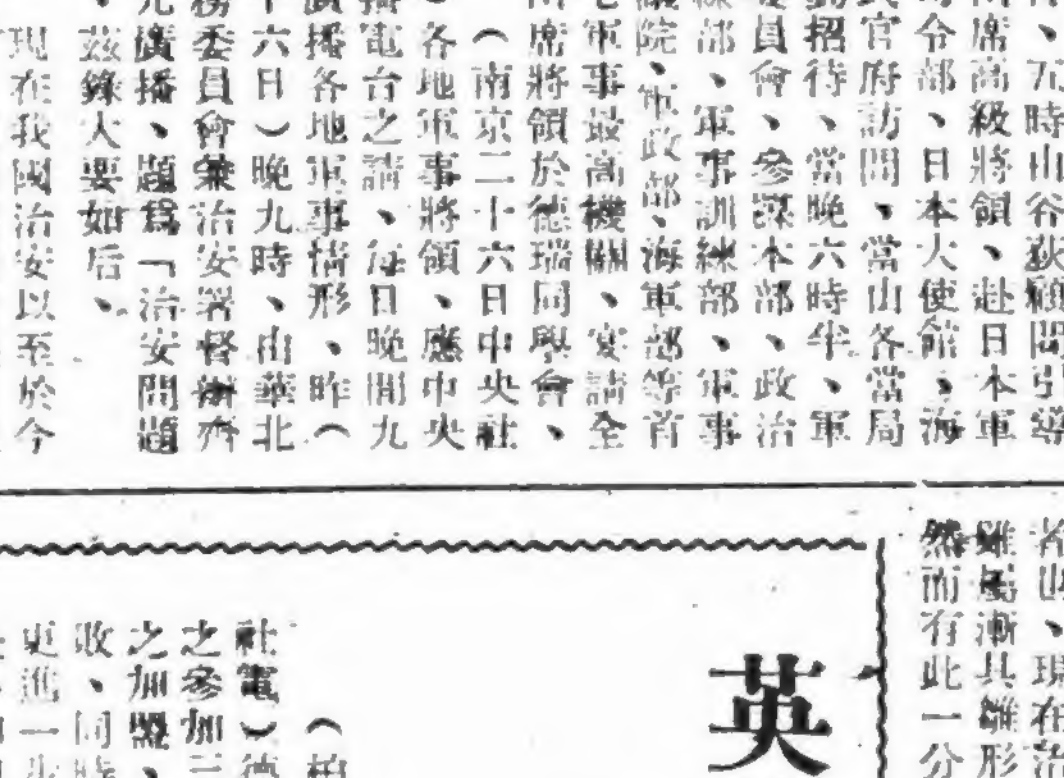 時由谷荻顧問引導
席高級將領、赴日本軍
令部、日本大使館、海
官府訪問、當由各當局
招待、當晚六時半、軍
員會、參謀本部、政治
部、軍事訓練部、軍事
院、軍政部、海軍部等首
軍事最高機關、宴請全
席將領於德瑞同學會、
（南京二十六日中央社
）各地軍事將領、應中央
播電台之請、每日晚間九
廣播各地軍事情形、昨（
十六日）晚九時、由華北
務委員會兼治安署督辦齊
元廣播、題爲「治安問題
、茲錄大要如后、
現在我國治安以至於今
、現在治
雖屬漸具雛形
然而有此一分
英
（柏
社電）德
之參加三
之加盟、
敗、同時
更進一步